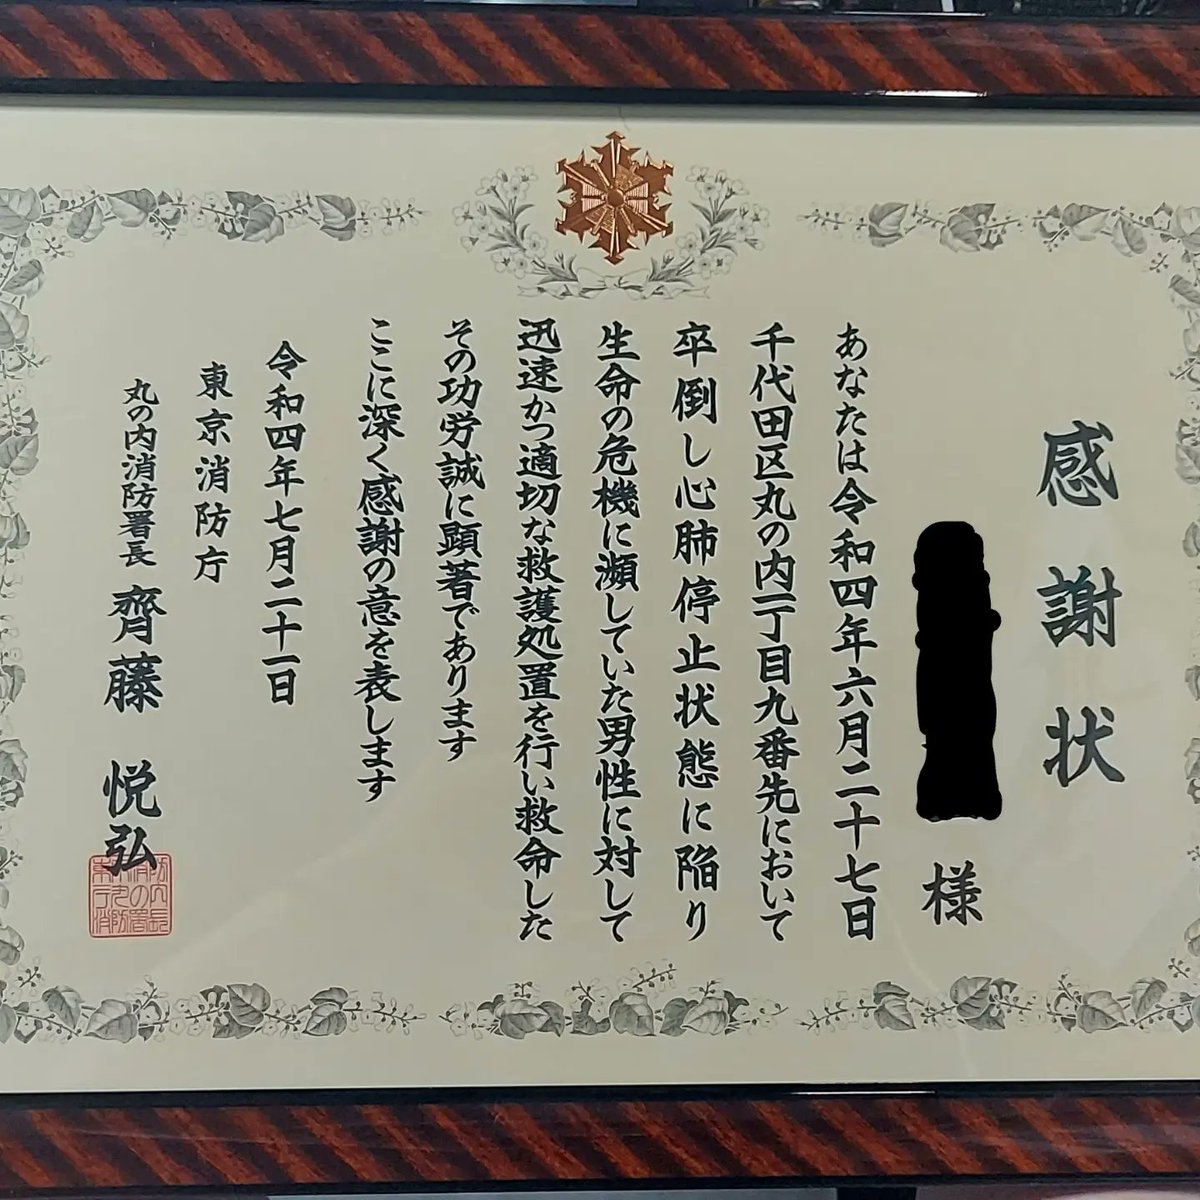 感謝状
様
あなたは令和四年六月二十七日
千代田区丸の内一丁目九番先において
卒倒し心肺停止状態に陥り
生命の危機に瀕していた男性に対して
迅速かつ適切な救護処置を行い救命した
その功労誠に顕著であります
ここに深く感謝の意を表します
令和四年七月二十一日
東京消防庁
丸の内消防署長 齊藤 悦弘